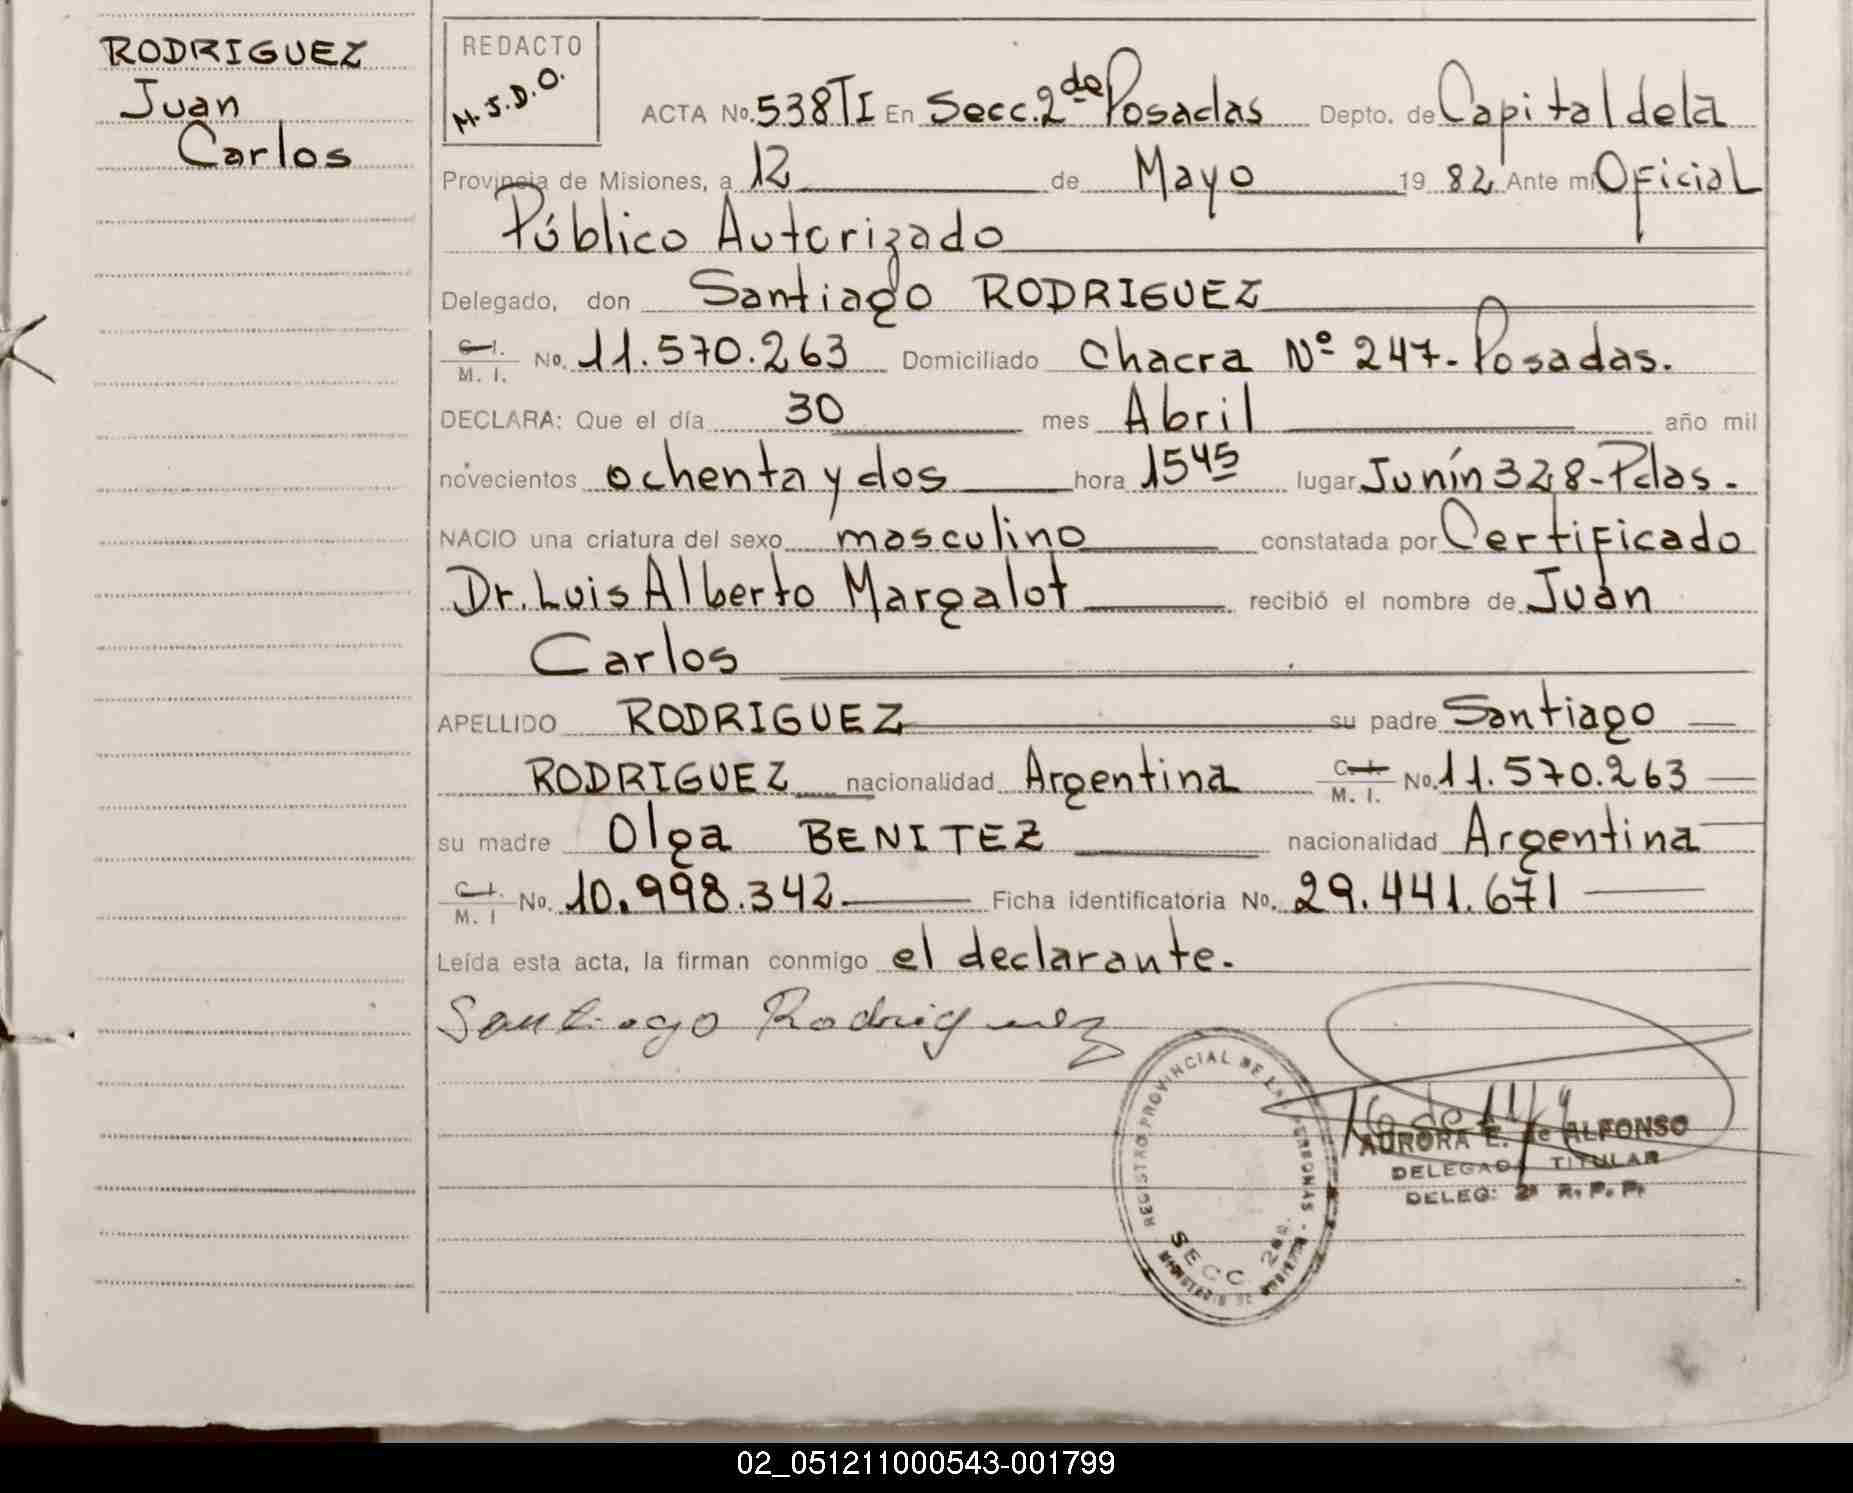 RODRIGUEZ
Juan
Carlos
REDACTO
M.J.D.O.
ACTA No. 538TI En Secc. 2da Posadas Depto. de Capital de la
Provincia de Misiones, a 12 de Mayo 19 82 Ante mi Oficial
Público Autorizado
Delegado, don Santiago RODRIGUEZ
C.I. M. I. No. 11.570.263 Domiciliado Chacra Nº 247-Posadas.
DECLARA: Que el día 30 mes Abril año mil
novecientos ochenta y dos hora 15 45 lugar Junín 328-Pdas.
NACIO una criatura del sexo masculino constatada por Certificado
Dr. Luis Alberto Margalot recibió el nombre de Juan
Carlos
APELLIDO RODRIGUEZ su padre Santiago
RODRIGUEZ nacionalidad Argentina C.I. M. I. No. 11.570.263
su madre Olga BENITEZ nacionalidad Argentina
C.I. M. I No. 10.998.342 Ficha identificatoria No. 29.441.671
Leída esta acta, la firman conmigo el declarante.
Santiago Rodriguez
REGISTRO PROVINCIAL DE LAS PERSONAS
SECC. 2da.
AURORA E. de ALFONSO
DELEGADA TITULAR
DELEG: 2ª R. P. P.
02_051211000543-001799